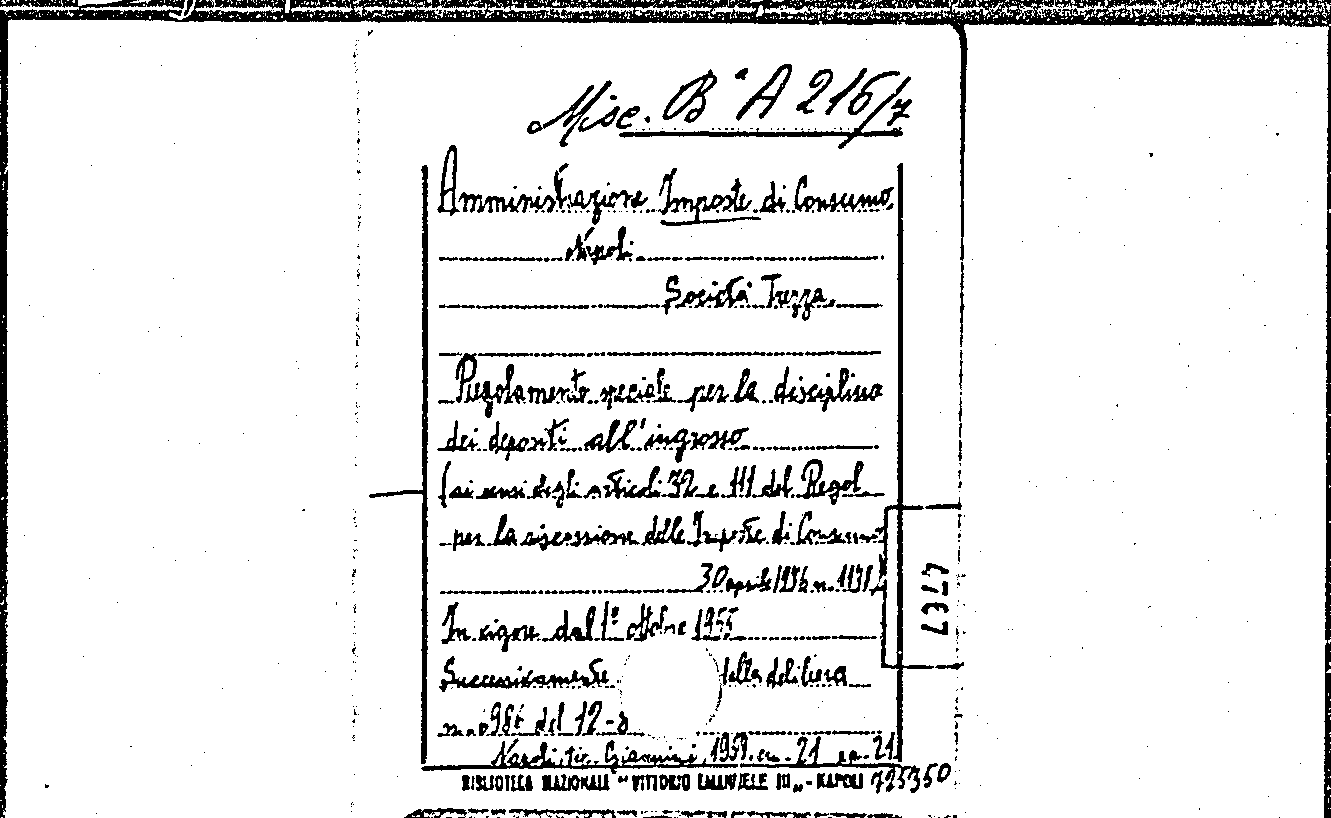 Misc. Bª A 216/7
Amministrazione Imposte di Consumo.
Napoli.
Società Trezza.
Regolamento speciale per la disciplina
dei depositi all'ingrosso
(ai sensi degli articoli 32 e 111 del Regol.
per la riscossione delle Imposte di Consumo
30 aprile 1936 n. 1138)
In vigore dal 1° ottobre 1955
Successivamente della delibera
del 12-
Napoli, tip. Giannini, 1959. cm. 21
BIBLIOTECA NAZIONALE "VITTORIO EMANUELE III" - NAPOLI 725350
4767